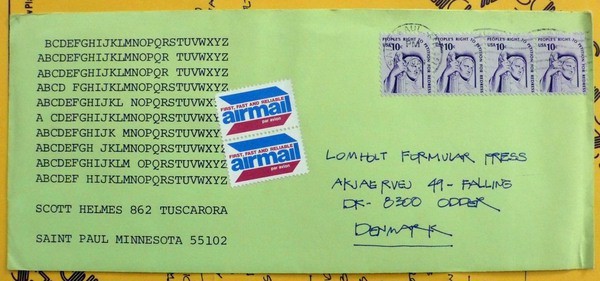 BCDEFGHIJKLMNOPQRSTUVWXYZ
ABCDEFGHIJKLMNOPQR TUVWXYZ
ABCDEFGHIJKLMNOPQR TUVWXYZ
ABCD FGHIJKLMNOPQRSTUVWXYZ
ABCDEFGHIJKL NOPQRSTUVWXYZ
A CDEFGHIJKLMNOPQRSTUVWXYZ
ABCDEFGHIJK MNOPQRSTUVWXYZ
ABCDEFGH JKLMNOPQRSTUVWXYZ
ABCDEFGHIJKLM OPQRSTUVWXYZ
ABCDEF HIJKLMNOPQRSTUVWXYZ
SCOTT HELMES 862 TUSCARORA
SAINT PAUL MINNESOTA 55102
FIRST, FAST AND RELIABLE
airmail
par avion
FIRST, FAST AND RELIABLE
airmail
par avion
PM
PEOPLE'S RIGHT TO PETITION FOR REDRESS
USA 10c
PEOPLE'S RIGHT TO PETITION FOR REDRESS
USA 10c
PEOPLE'S RIGHT TO PETITION FOR REDRESS
USA 10c
PEOPLE'S RIGHT TO PETITION FOR REDRESS
USA 10c
LOMHOLT FORMULAR PRESS
AKJAERVEJ 49 - FALLING
DK- 8300 ODDER
DENMARK